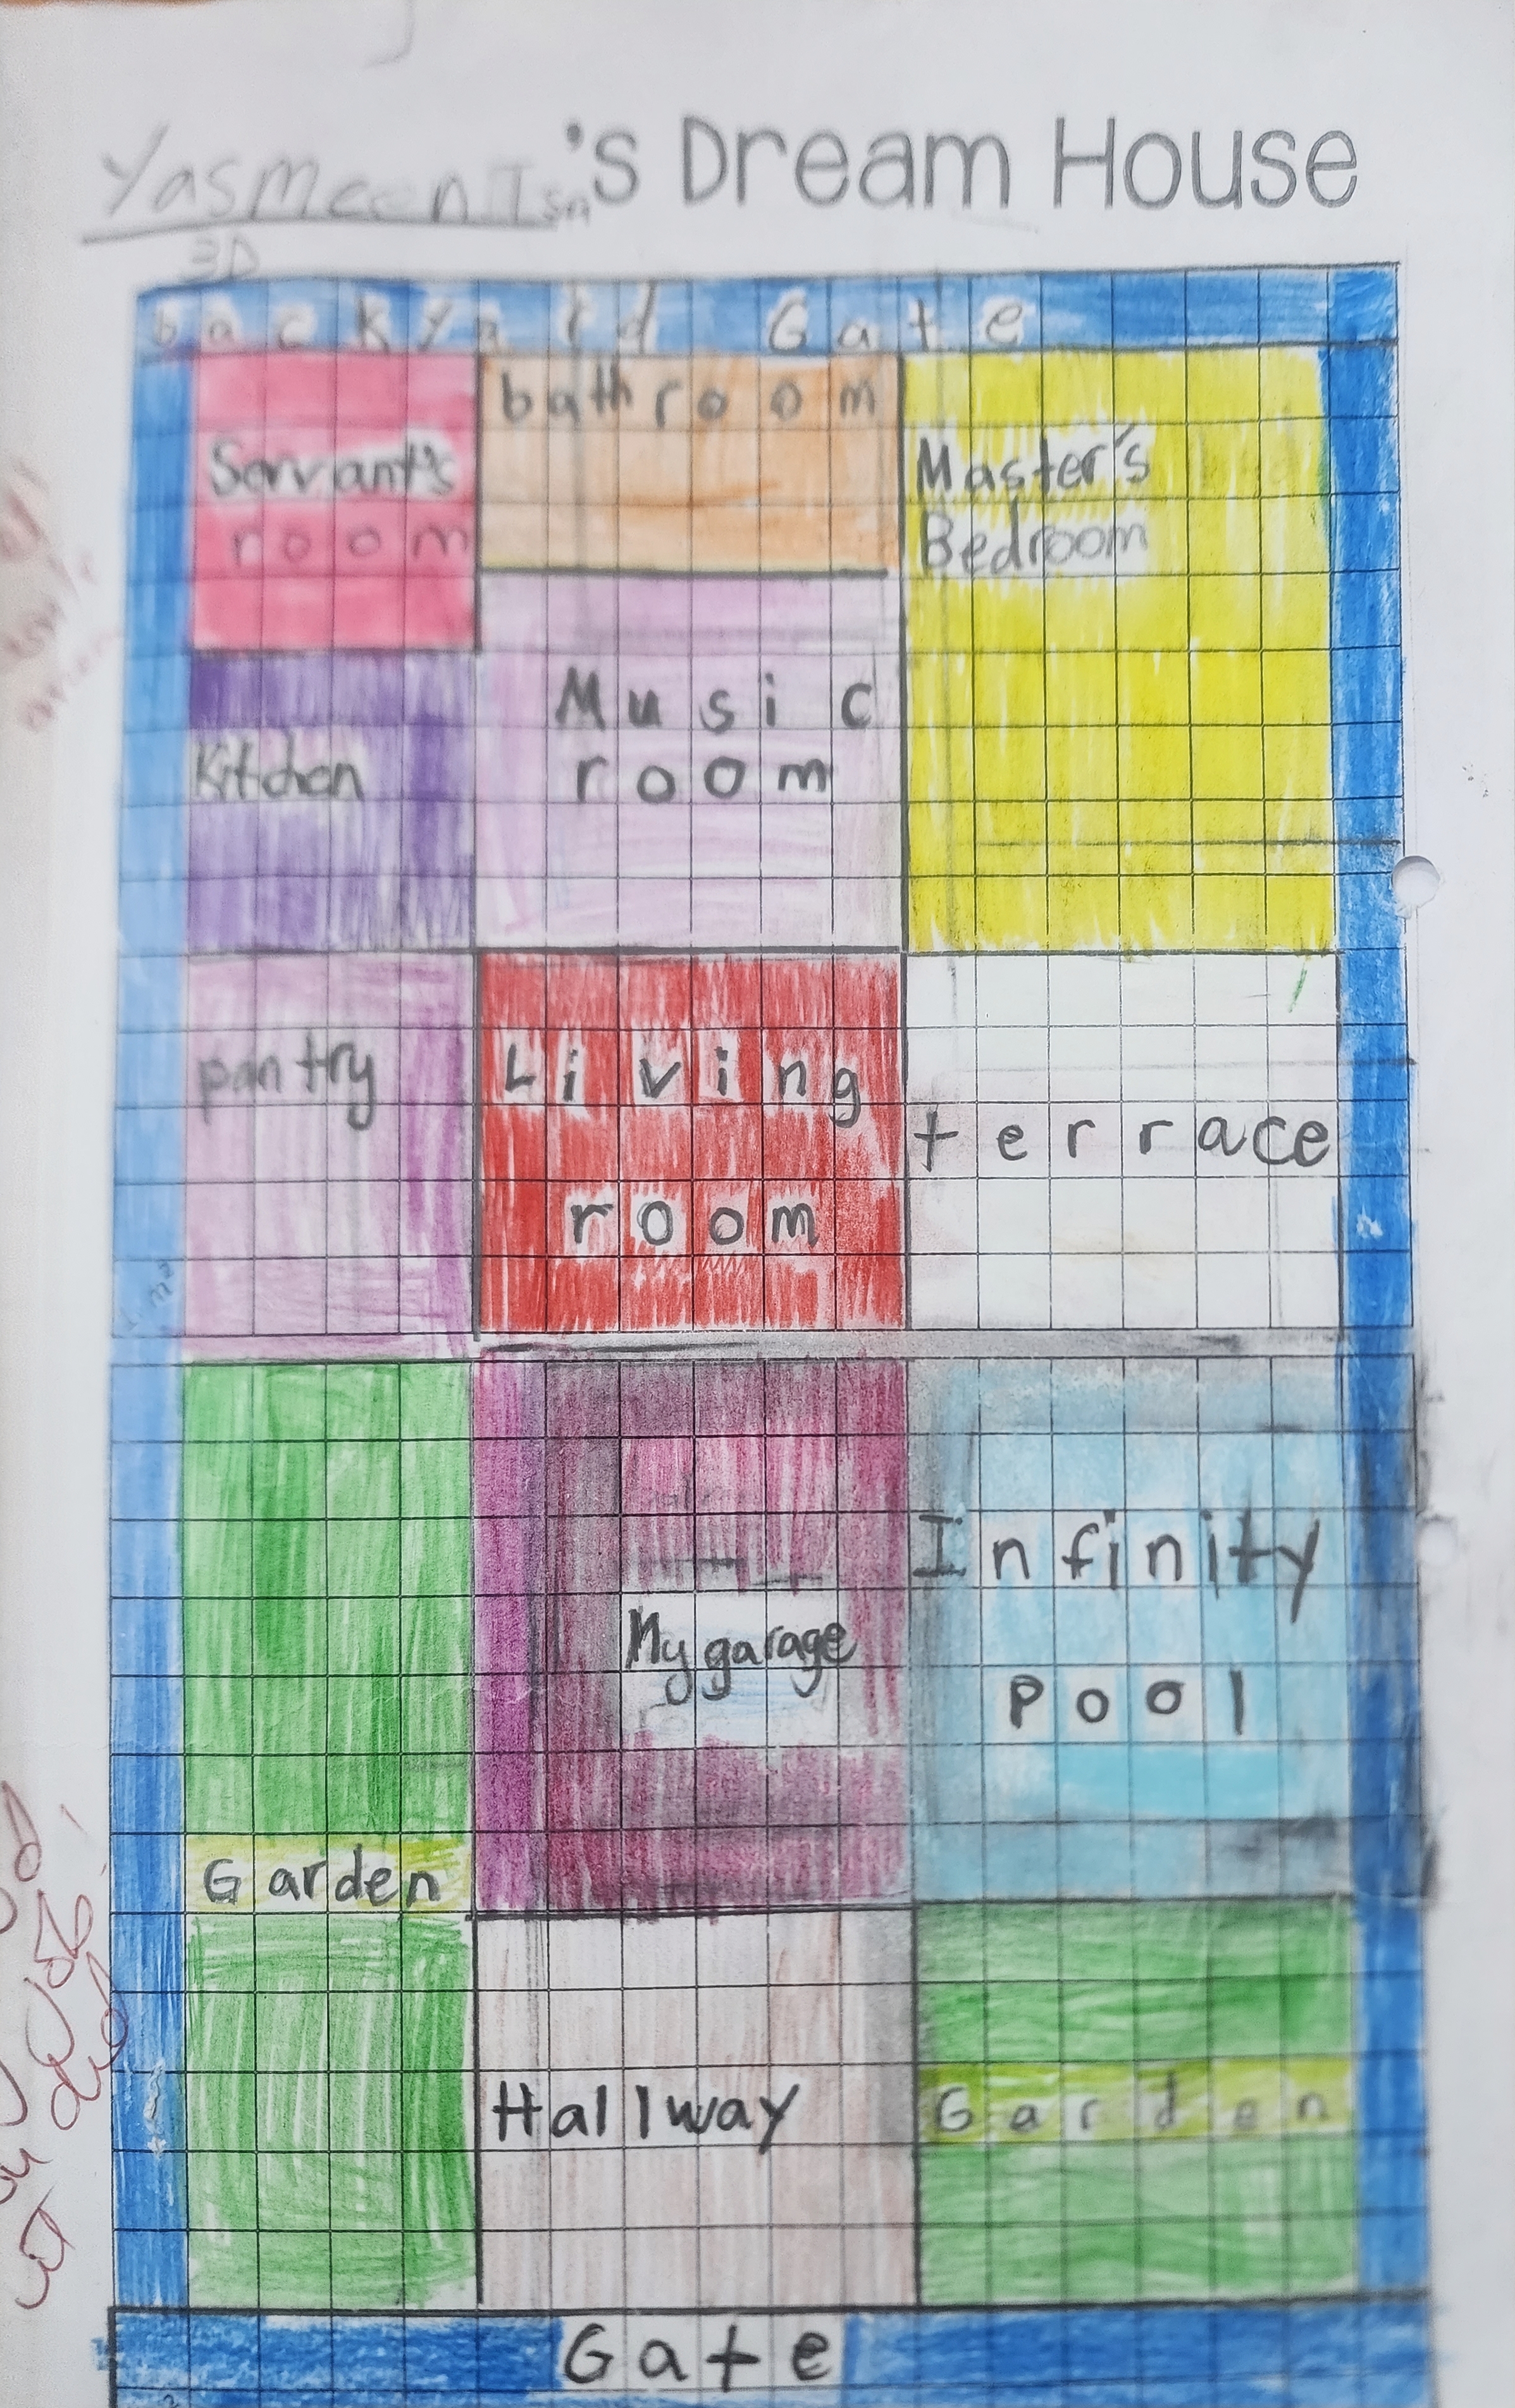 Yasmeen Isn's Dream House
3D
backyard Gate
Servant's
room
bathroom
Master's
Bedroom
Kitchen
Music
room
pantry
Living
room
terrace
My garage
Infinity
pool
Garden
Hallway
Garden
Gate